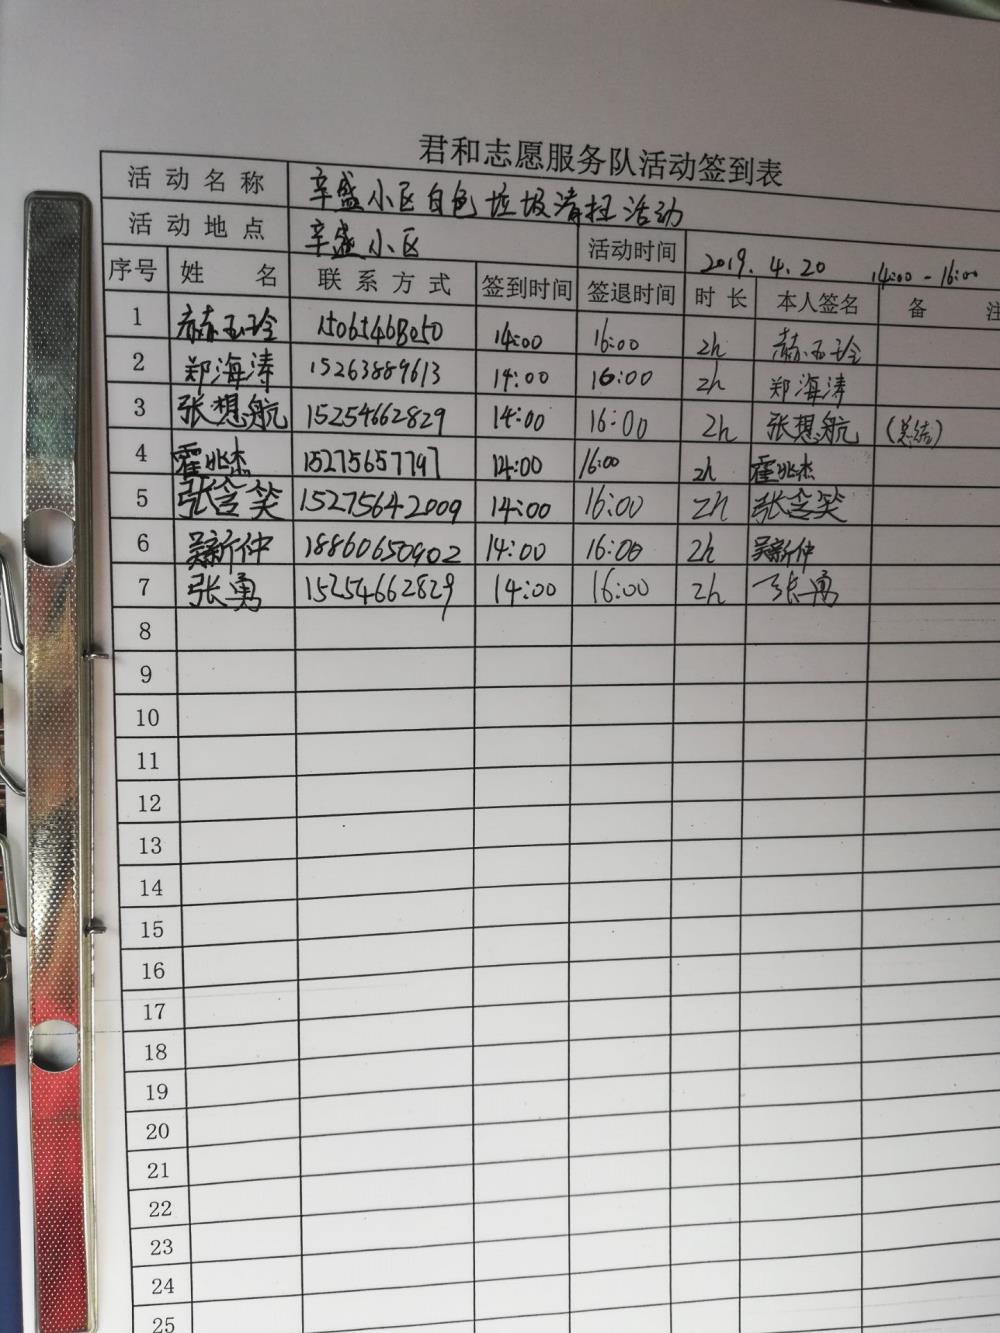 君和志愿服务队活动签到表
活动名称 辛盛小区白色垃圾清扫活动
活动地点 辛盛小区 活动时间 2019.4.20 14:00-16:00
序号 姓名 联系方式 签到时间 签退时间 时长 本人签名 备注
1 郝玉玲 14:00 16:00 2h 郝玉玲
2 郑海涛 15263889613 14:00 16:00 2h 郑海涛
3 张想航 15254662829 14:00 16:00 2h 张想航 (总结)
4 霍兆杰 15275657797 14:00 16:00 2h 霍兆杰
5 张含笑 15275642009 14:00 16:00 2h 张含笑
6 吴新仲 18860650902 14:00 16:00 2h 吴新仲
7 张勇 15254662829 14:00 16:00 2h 张勇
8
9
10
11
12
13
14
15
16
17
18
19
20
21
22
23
24
25